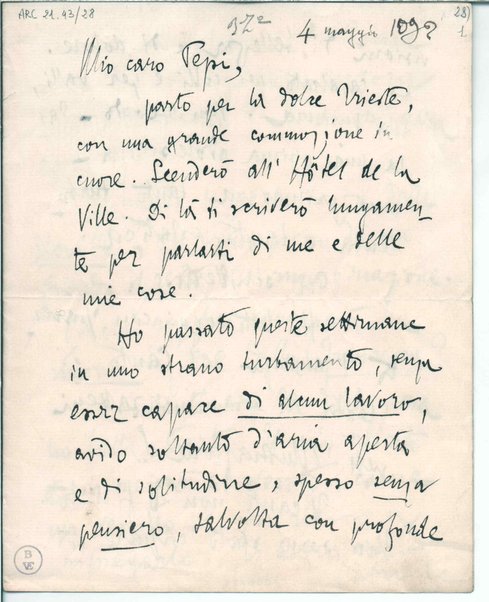 ARC 21.43/28
28)
1
4 maggio 1902
Mio caro Pepi,
parto per la dolce Trieste,
con una grande commozione in
cuore. Scenderò all' Hôtel de la
Ville. Di là ti scriverò lungamen-
te per parlarti di me e delle
mie cose.
Ho passato queste settimane
in uno strano turbamento, senza
esser capace di alcun lavoro,
avido soltanto d'aria aperta
e di solitudine, spesso senza
pensiero, talvolta con profonde
B
VE